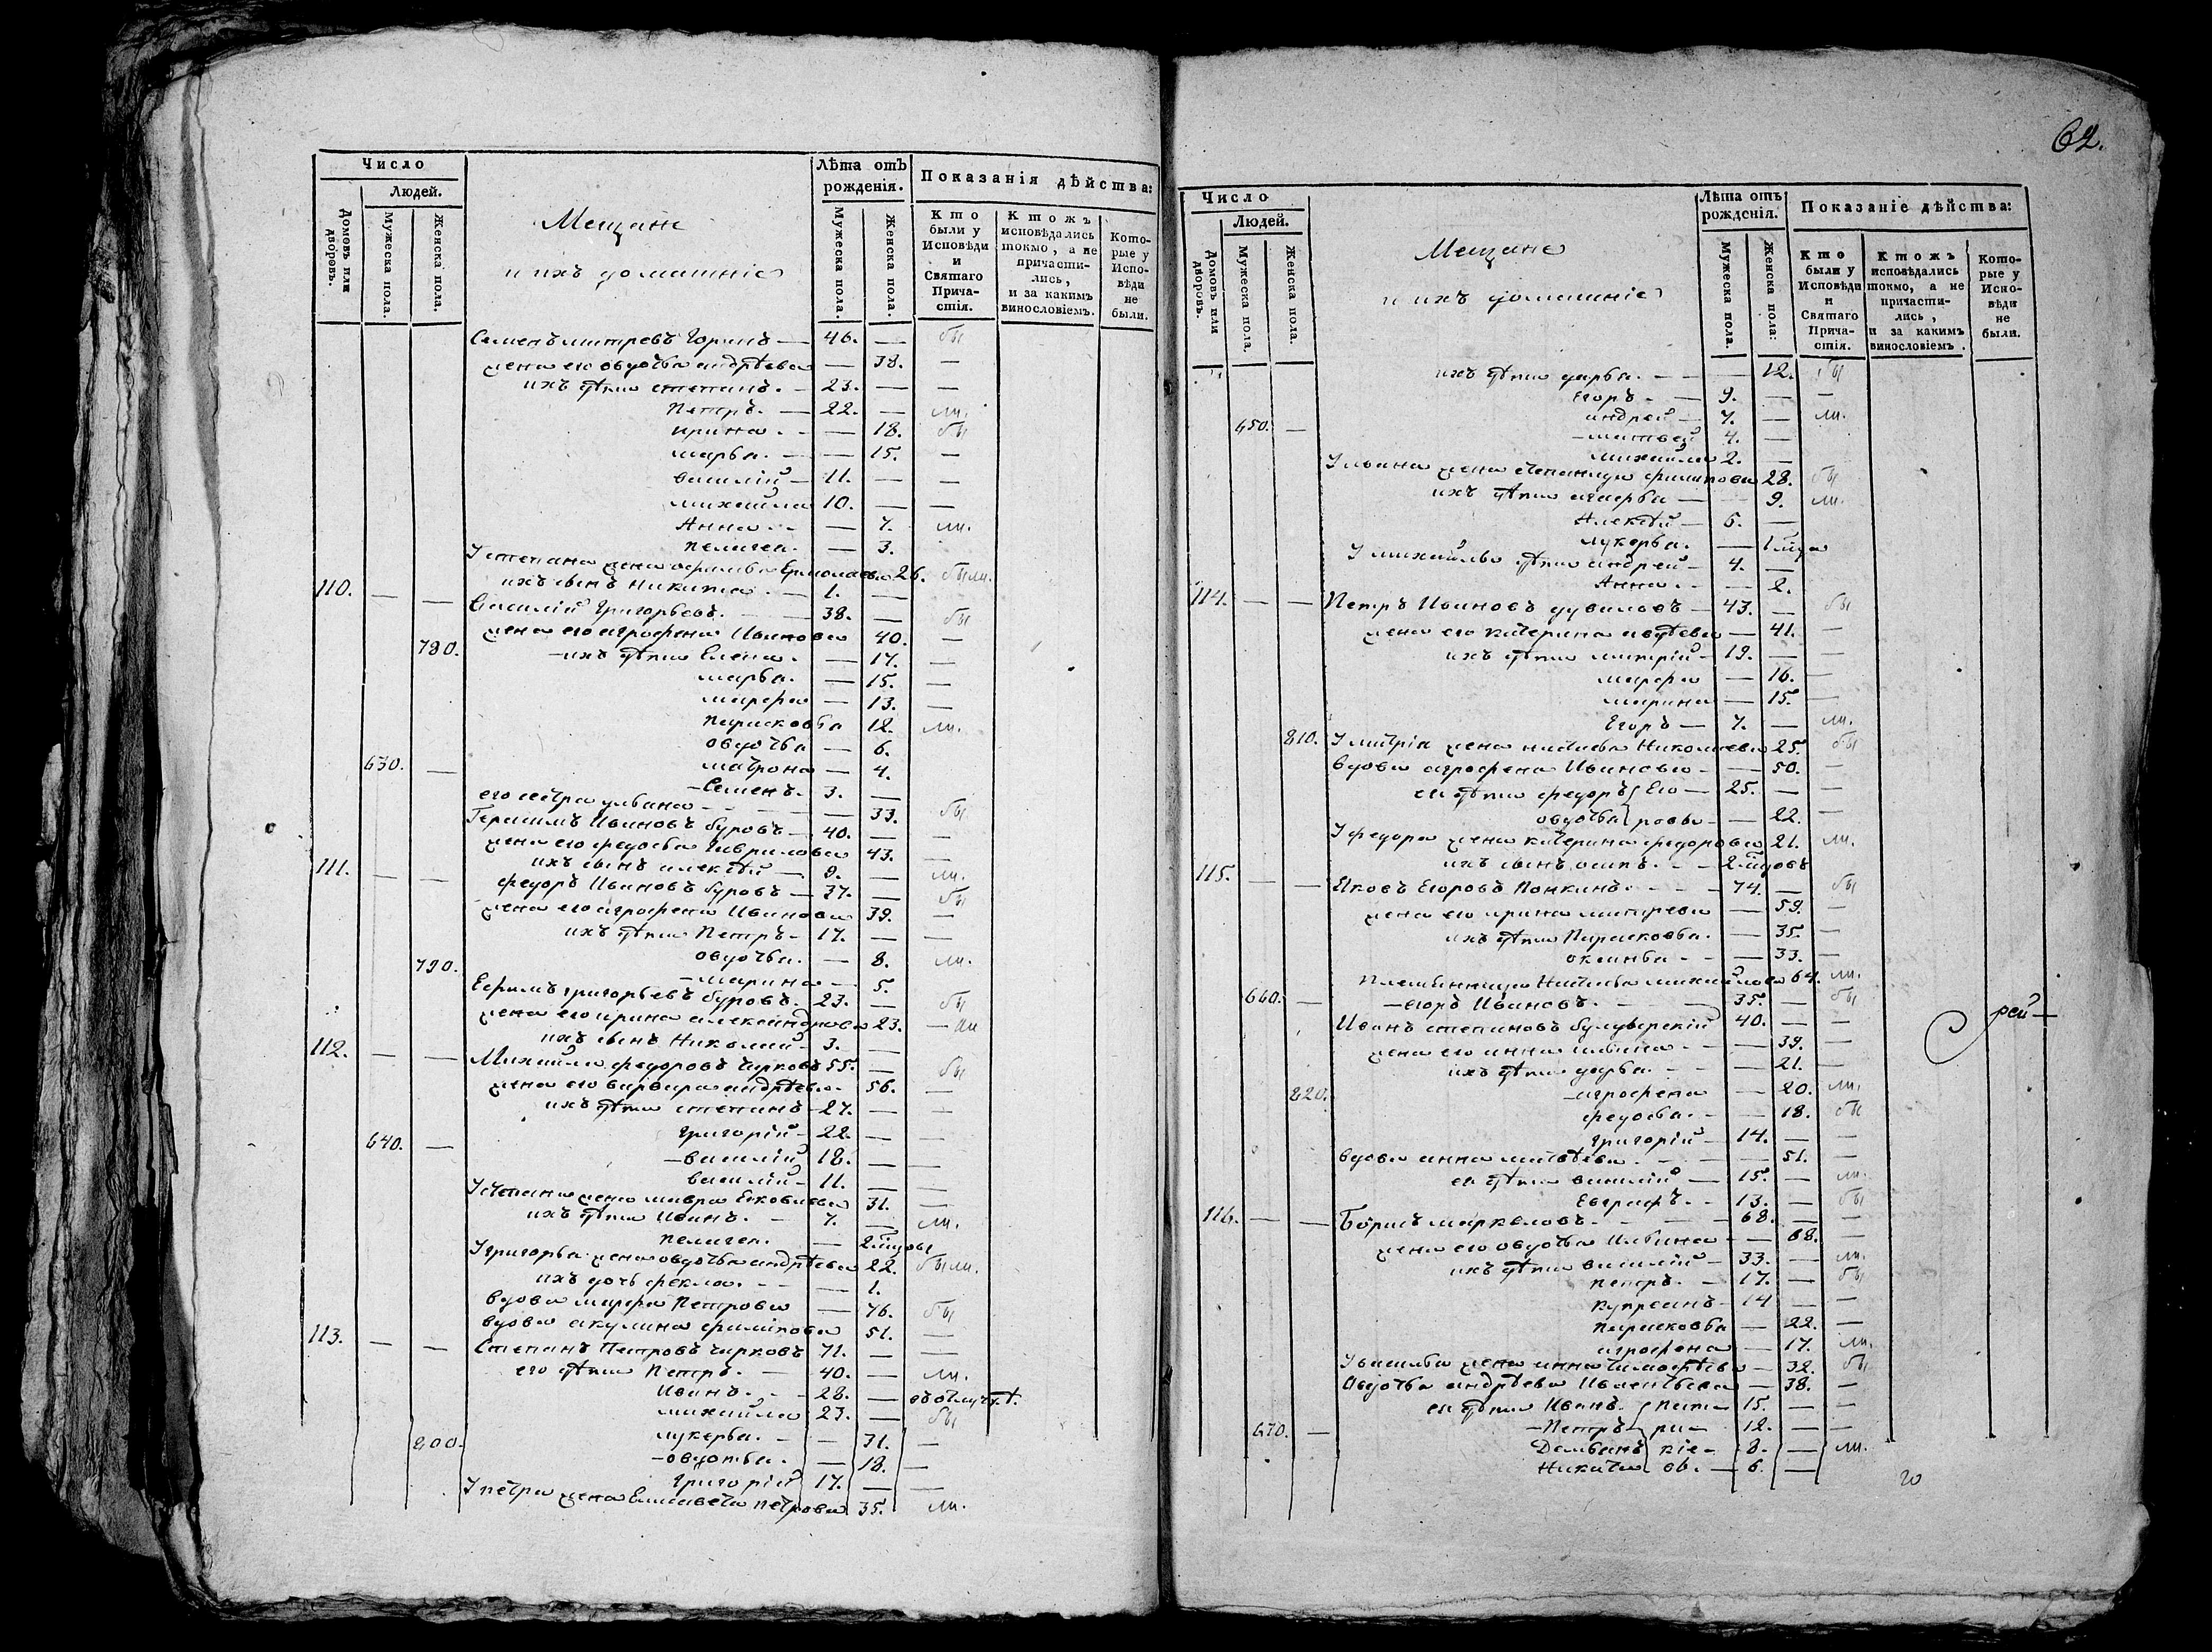 Число
Людей.
Домовъ или дворовъ.
Мужеска пола.
Женска пола.
Мещане
и ихъ домашніе
Лѣта отъ рожденія.
Мужеска пола.
Женска пола.
Показанія дѣйства:
Кто были у Исповѣди и Святаго Прича-стія.
Ктожъ исповѣдались токмо, а не причасти-лись, и за какимъ винословіемъ.
Кото-рые у Испо-вѣди не были.
Семенъ митревъ Горинъ — 46. — бы
жена его авдотья андрѣева — 38. —
ихъ дѣти степанъ. — 23. — —
Петръ. — 22. — ли.
ирина. — — 18. бы
марья. — — 15. —
василій — 11. — —
михайла 10. — —
Анна — — 7. ли.
пелагея. — 3.
У степана жена Ермолаева 26. были.
ихъ сынъ Никита. — 1. —
110. — — Василій Григорьевъ. — 38. — бы
жена его агрофена Иванова 40. —
780. ихъ дѣти Елена. — 17. —
марья. — 15. —
марфа — 13. —
парасковья 12. ли.
овдотья — 6.
630. — матрона — 4.
Семенъ. 3. —
его сестра ульяна — — 33. бы
Герасимъ Ивановъ буровъ — 40. — —
жена его федосья Гаврилова 43. —
ихъ сынъ алексѣй — 9. — ли.
111. — — федоръ Ивановъ буровъ — 37. — бы
жена его агрофена Иванова 39. —
ихъ дѣти Петръ — 17. — —
овдотья. — 8. ли.
790. марина — 5.
Ефимъ григорьевъ буровъ. 23. — бы
жена его ирина александрова 23. — ли
ихъ сынъ Николай — 3. —
112. — — Михайла федоровъ чирковъ 55. — бы
жена его варвара андрѣева. 56. —
ихъ дѣти степанъ — 27. — —
Григорій — 22. — —
640. — василій 18. — —
василій — 11. — —
У степана жена мавра Яковлева 31. —
ихъ дѣти Иванъ. — 7. — ли.
пелагея. — 2 годы
У григорья жена овдотья андрѣева 22. были.
ихъ дочь фекла. — — 1.
вдова марфа Петрова — 76. бы
вдова акулина филипова 51. —
113. — — Степанъ Петровъ чирковъ 71. — —
его дѣти Петръ. — 40. — ли.
Иванъ. — 28. — въ отлучкѣ.
михайла 23. — бы
200. лукерья. — — 31. —
овдотья. — 18. —
Григорій 17. — —
У петра жена Елисавета петрова 35. ли.
62.
Число
Людей.
Домовъ или дворовъ.
Мужеска пола,
Женска пола.
Мещане
и ихъ домашніе
Лѣта отъ рожденія.
Мужеска пола.
Женска пола:
Показаніе дѣйства:
Кто были у Исповѣди и Святаго Прича-стія.
Ктожъ исповѣдались токмо, а не причасти-лись, и за какимъ винословіемъ.
Кото-рые у Испо-вѣди не были.
ихъ дѣти дарья. — — 12. бы
Егоръ — — 9. — —
андрей — 7. — ли.
650. — матвей 4. —
михайла 2. —
У ивана жена степанида филипова 28. бы
ихъ дѣти — 9. ли.
Алексѣй — 5. —
лукерья. — 1 года
У михайлы дѣти андрей — 4. —
Анна — — 2.
114. — — Петръ Ивановъ — 43. — бы
жена его катерина авдѣева — 41. —
ихъ дѣти митрій — 19. — —
марфа — 16. —
марина — 15. —
Егоръ — 7. — ли.
810. У митрія жена настасья Николаева 25. бы
вдова агрофена Иванова — — 50. —
ея дѣти федоръ Его — 25. — —
овдотья ровы — — 22. —
У федора жена катерина федорова 21. ли.
ихъ сынъ осипъ. — — 2 годовъ
115. — — Яковъ Егоровъ Понкинъ. — 74. — бы
жена его ирина митрева — 59. —
ихъ дѣти Парасковья. — 35. —
оксинья — — 33. —
племянница Настасья михайлова 64. ли.
660. — егоръ Ивановъ. — 35. — бы
Иванъ степановъ 40. — — рей
жена его анна — — 39. —
ихъ дѣти дарья. — — 21. —
820. агрофена 20. ли.
федосья. — — 18. бы
григорій — 14. — —
вдова анна матвѣева. — — 51. —
ея дѣти василій — 15. — ли.
Евграфъ. — 13. — бы
116. — — Борисъ маркеловъ. — 68. — —
жена его овдотья Ильина — 68. —
ихъ дѣти василій — 33. — ли.
петръ. — 17. — бы
купреянъ — 14 — —
парасковья — 22. —
агрофена — 17. ли.
У василья жена анна тимофѣева — 32. бы
Овдотья андрѣева — 38. —
ея дѣти Иванъ. 15. — —
670. — Петръ 12. — —
Демьянъ 8. — ли.
Никита 6. —